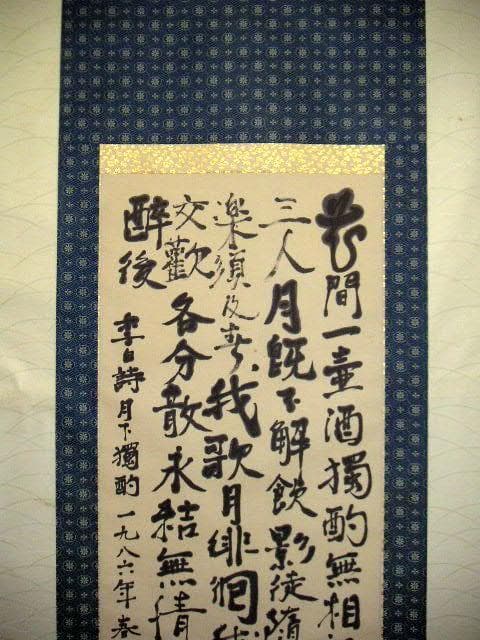 花間一壺酒獨酌無相
三人月既不解飲影徒隨
楽須及春我歌月徘徊
交歡
醉後
各分散永結無情
李白詩月下獨酌一九八六年春